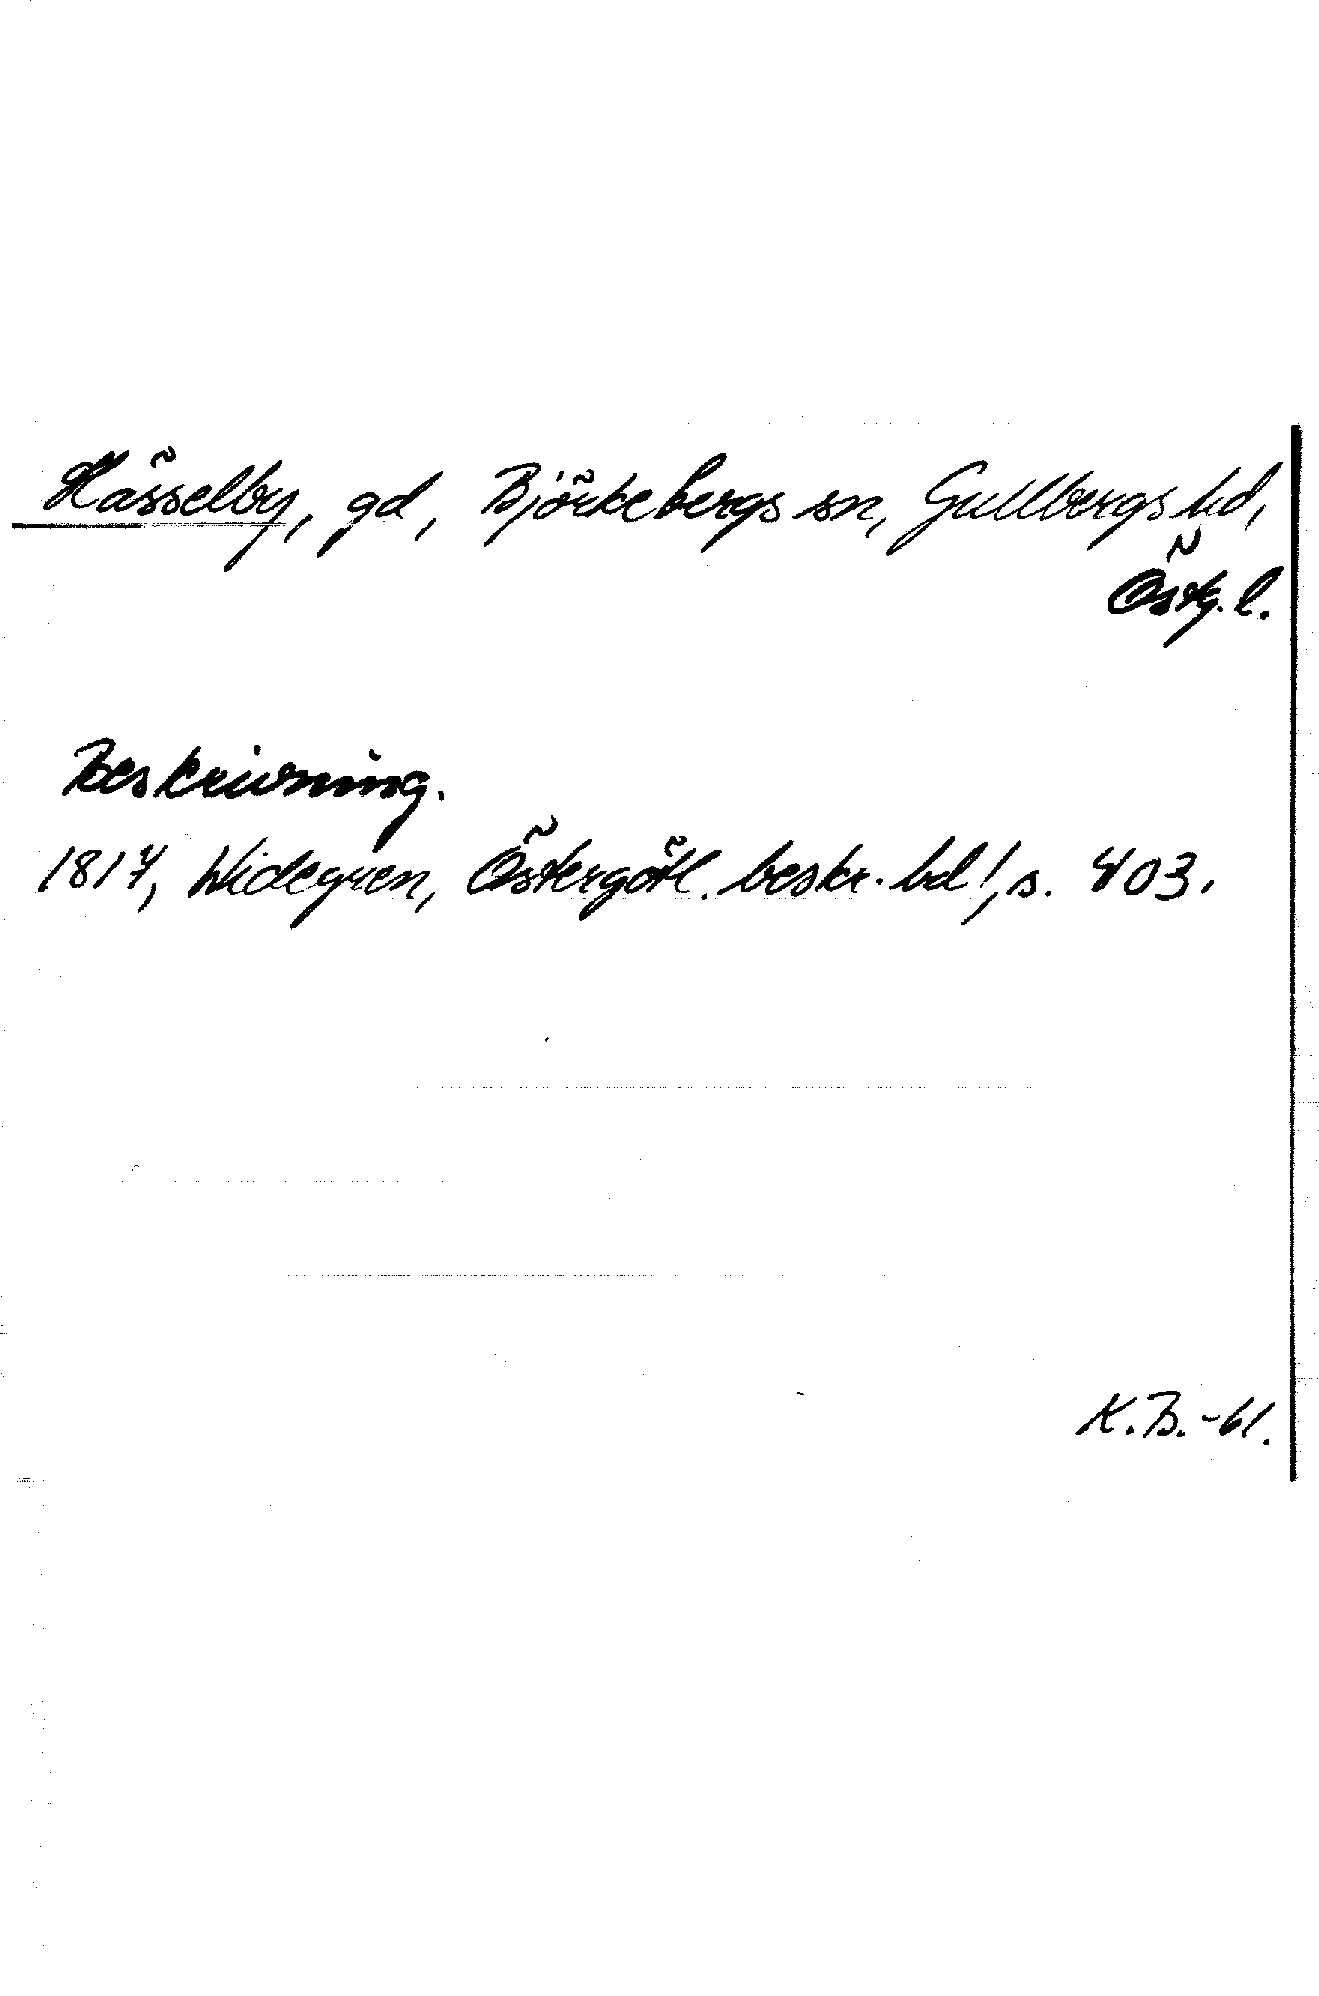 Hässelby, gd, Björkebergs sn, Gullbergs hd,
Östg. l.
Beskrivning.
1817, Widegren, Östergötl. beskr. bd 1, s. 403.
K.B.-61.